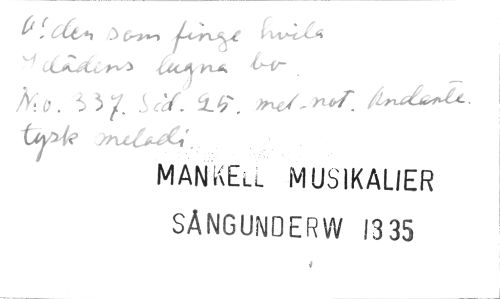 O! den som finge hvila
I dödens lugna bo.
N:o. 337. Sid. 25. mel. not. Andante.
tysk melodi.
MANKELL MUSIKALIER
SÅNGUNDERW 1835